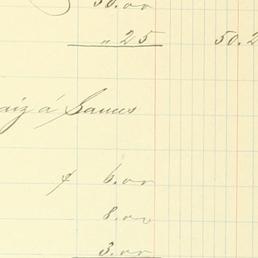 50.00
" 25 50.2
aiz á Barrus
$ 6.00
8.00
3.00